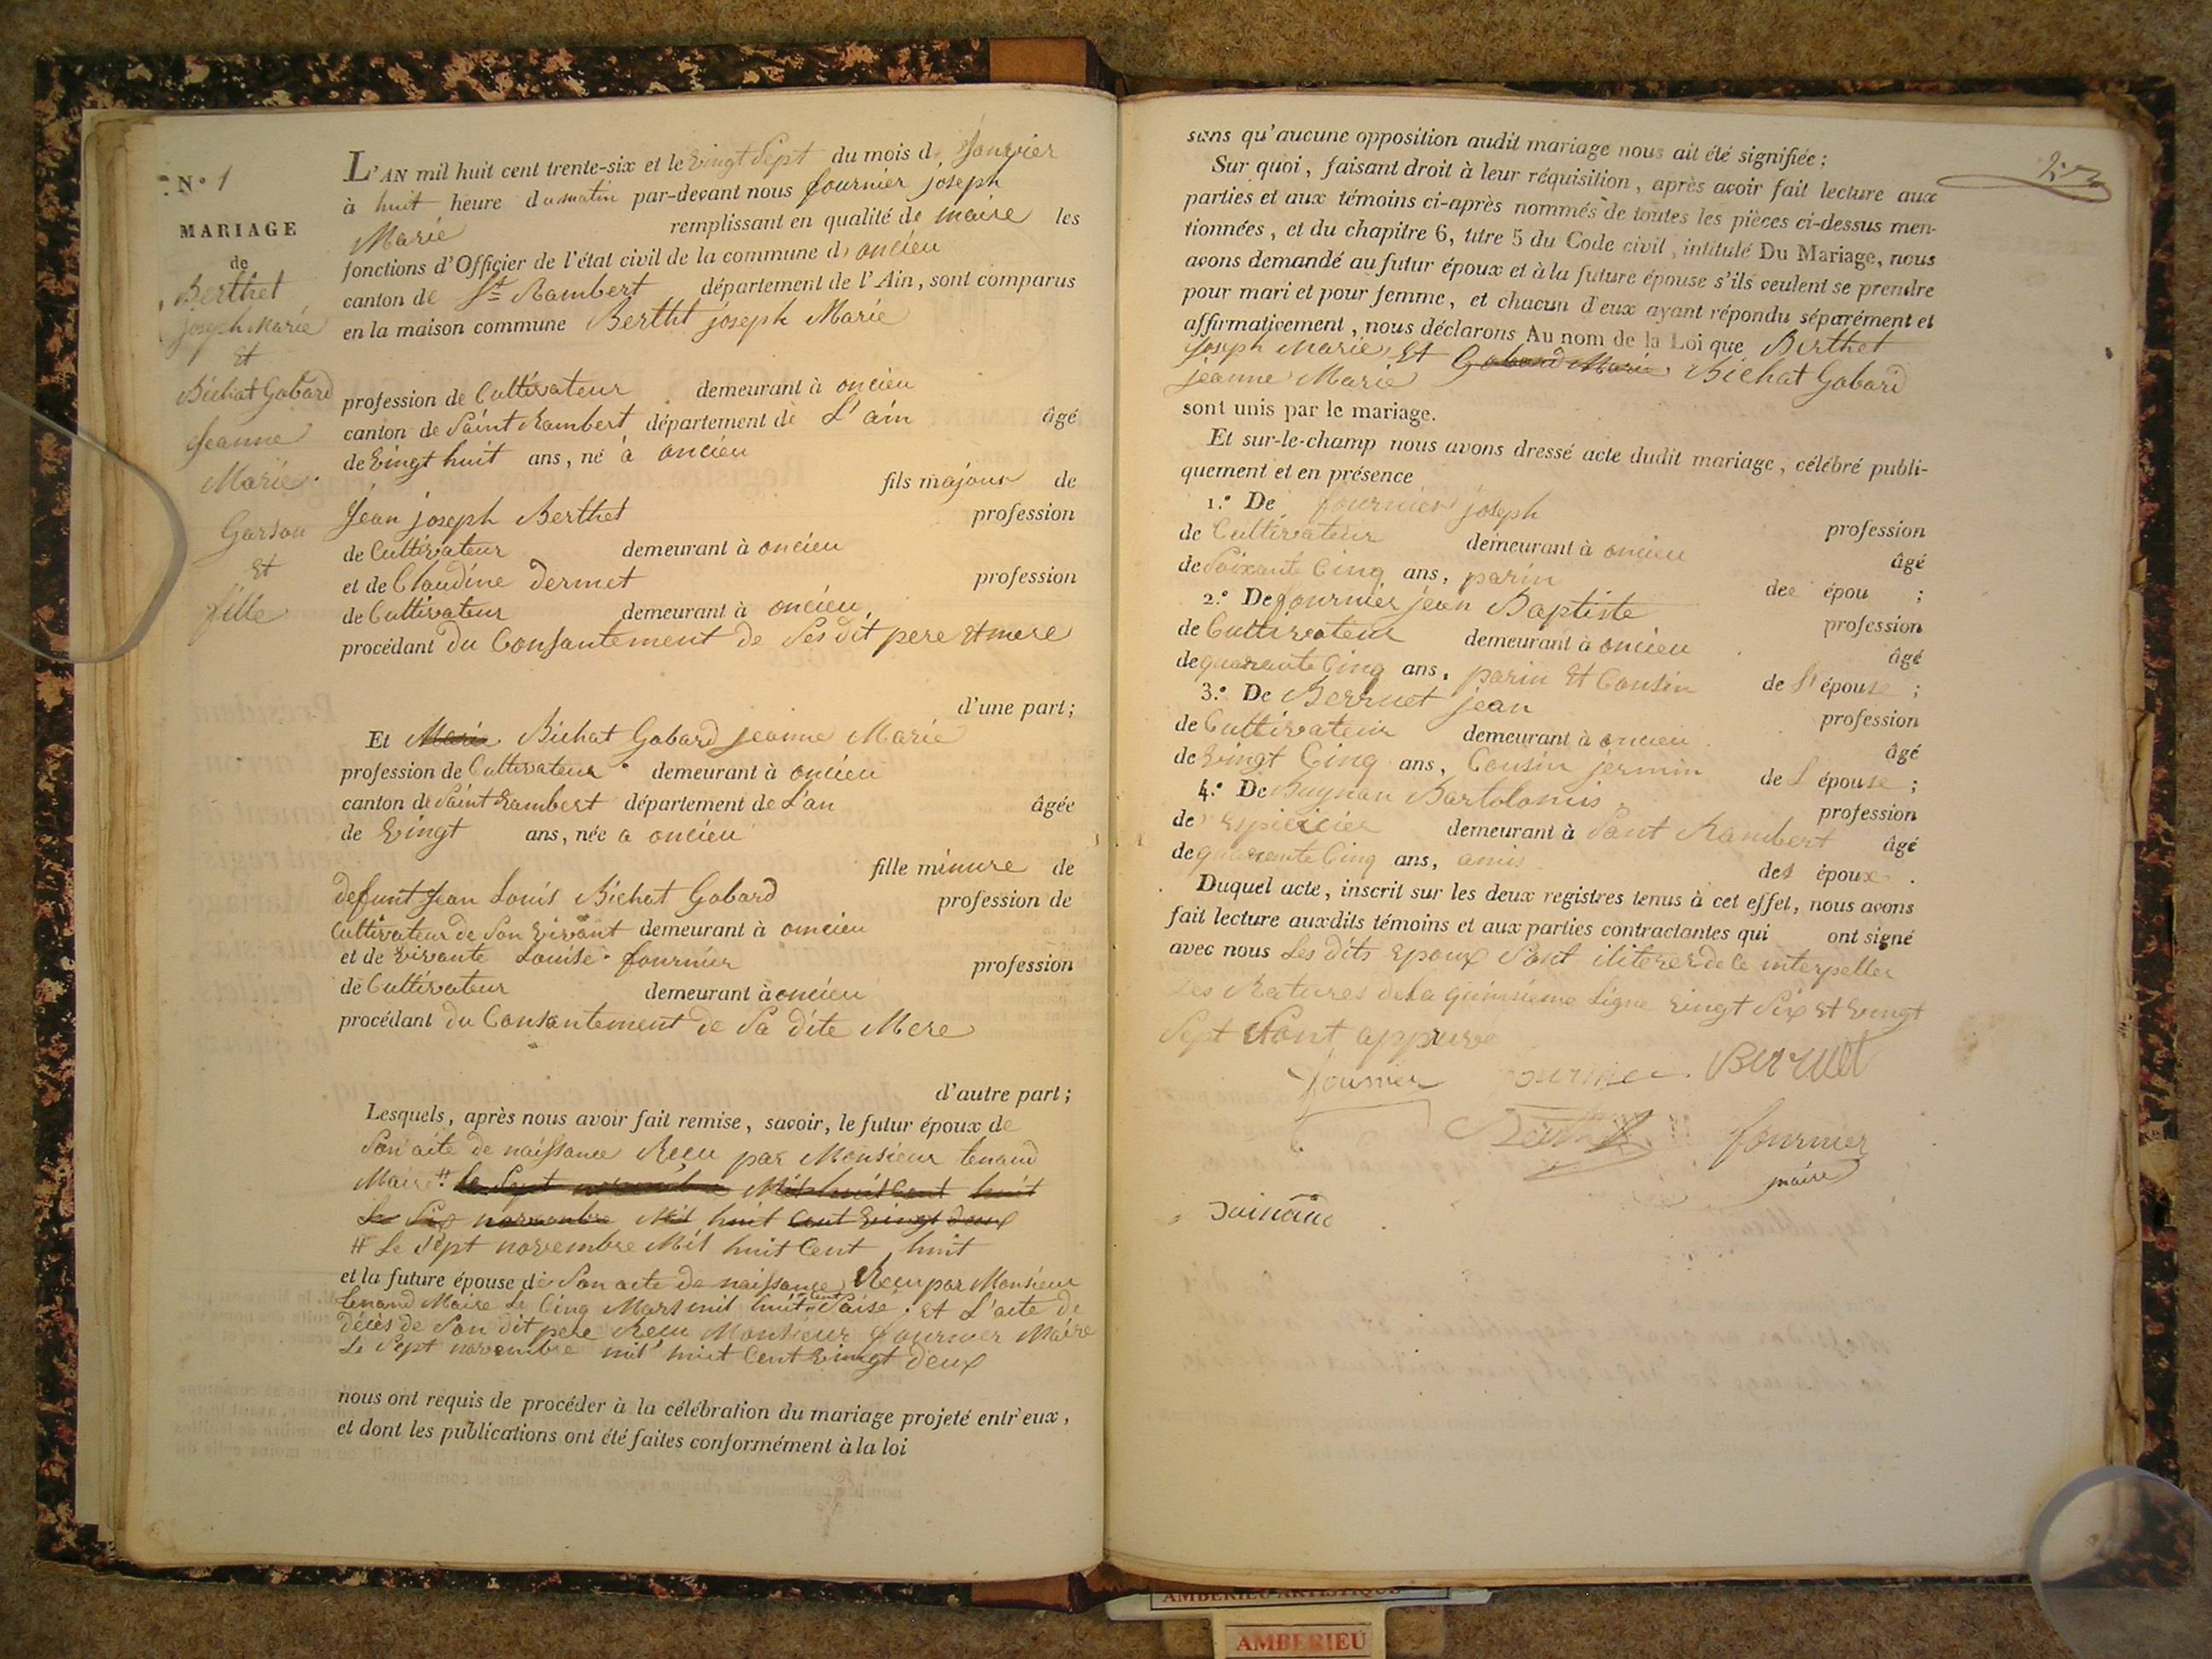 N.° 1
MARIAGE
de
Berthet
joseph Marie
Et
Bichat Gobard
Jeanne
Marie.
Garson
Et
fille
L'AN mil huit cent trente-six et le Vingt Sept du mois d Janvier
à huit heure du matin par-devant nous fournier joseph
Marie remplissant en qualité de maire les
fonctions d'Officier de l'état civil de la commune d oncieu
canton de St Rambert département de l'Ain, sont comparus
en la maison commune Berthet joseph Marie
profession de Cultivateur demeurant à oncieu
canton de Saint Rambert département de L'ain âgé
de Vingt huit ans, né à oncieu
fils majour de
Jean joseph Berthet profession
de Cultivateur demeurant à oncieu
et de Claudine Dermet profession
de Cultivateur demeurant à oncieu,
procédant du Consantement de Ses dit pere Et mere
d'une part;
Et Marie Bichat Gobard jeanne Marie
profession de Cultivateur demeurant à oncieu
canton de Saint Rambert département de L'an âgée
de Vingt ans, née a oncieu
fille minure de
defunt Jean Louis Bichat Gobard profession de
Cultivateur de Son Vivant demeurant à oncieu
et de Vivante Louise fournier profession
de Cultivateur demeurant à oncieu
procédant du Consantement de Sa dite Mere
d'autre part;
Lesquels, après nous avoir fait remise, savoir, le futur époux de
Son aite de naissance Recu par Monsieur tenand
Maire # le Sept novembre Mil huit Cent huit
Le Six novembre Mil huit Cent Vingt deux
# Le Sept novembre Mil huit Cent huit
et la future épouse de Son acte de naissance Recu par Monsieur
tenand Maire Le Cinq Mars mil huit Cent Saise. Et L'acte de
décès de Son dit pere Recu Monsieur fournier Maire
Le Sept novembre mil huit Cent Vingt deux
nous ont requis de procéder à la célébration du mariage projeté entr'eux,
et dont les publications ont été faites conformément à la loi
sans qu'aucune opposition audit mariage nous ait été signifiée:
Sur quoi, faisant droit à leur réquisition, après avoir fait lecture aux
parties et aux témoins ci-après nommés de toutes les pièces ci-dessus men-
tionnées, et du chapitre 6, titre 5 du Code civil, intitulé Du Mariage, nous
avons demandé au futur époux et à la future épouse s'ils veulent se prendre
pour mari et pour femme, et chacun d'eux ayant répondu séparément et
affirmativement, nous déclarons Au nom de la Loi que Berthet
joseph Marie Et Gobard Marie Bichat Gobard
jeanne Marie
sont unis par le mariage.
Et sur-le-champ nous avons dressé acte dudit mariage, célébré publi-
quement et en présence
1.° De fournier joseph profession
de Cultivateur demeurant à oncieu âgé
de Soixante Cinq ans, parin des épou ;
2.° De fournier jean Baptiste profession
de Cultivateur demeurant à oncieu âgé
de quarante Cinq ans, parin Et Cousin de St épouse ;
3.° De Berruet jean profession
de Cultivateur demeurant à oncieu âgé
de Vingt Cinq ans, Cousin jermin de L épouse ;
4.° De Bugnan Bartolomis profession
de Espicicier demeurant à Sant Rambert âgé
de quarente Cinq ans, amis des époux .
Duquel acte, inscrit sur les deux registres tenus à cet effet, nous avons
fait lecture auxdits témoins et aux parties contractantes qui ont signé
avec nous Les dits Epoux Sont iliterer de Ce interpeller
Les Ratures de La quinsieme Ligne vingt Six Et Vingt
Sept Sont appruve
fournier fournier Berruet
Berthet fournier
maire
Juinand
AMBERIEU ARTISTIQUE
AMBERIEU